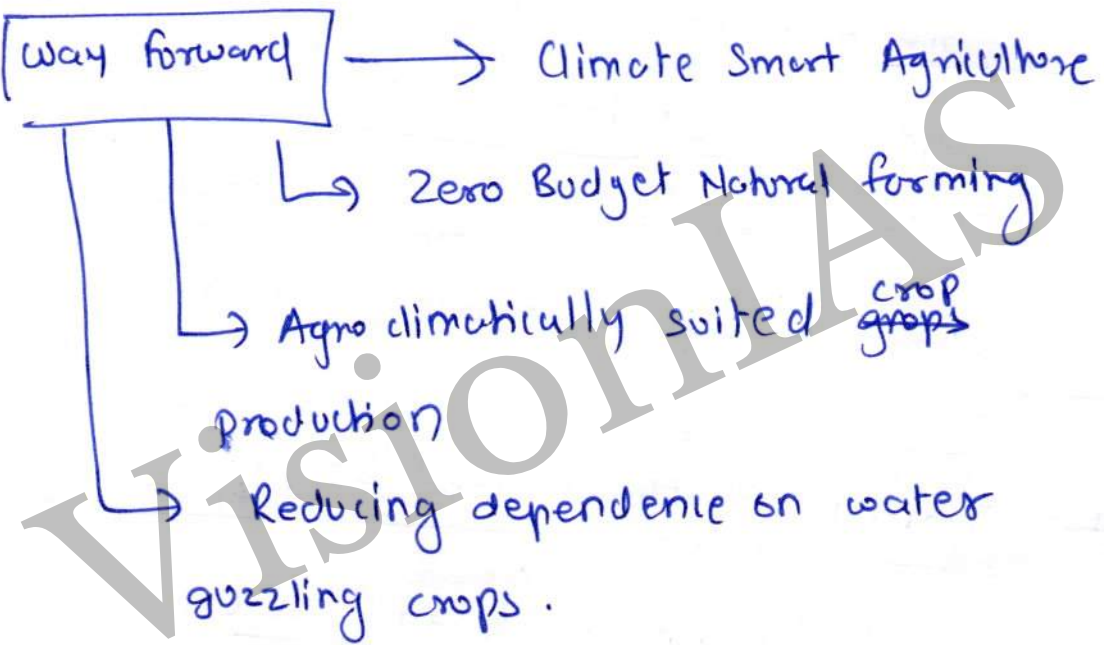 Way forward → Climate Smart Agriculture
→ Zero Budget Natural farming
→ Agro climatically suited crop
grops
production
→ Reducing dependence on water
guzzling crops.
VisionIAS